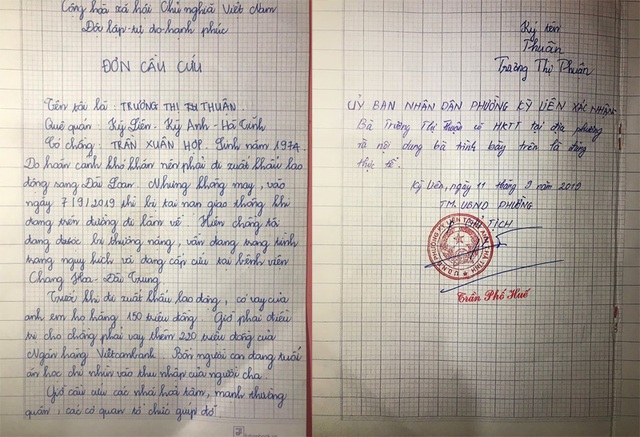 Cộng hòa xã hội Chủ nghĩa Việt Nam
Độc lập - tự do - hạnh phúc
ĐƠN CẦU CỨU
Tên tôi là : TRƯƠNG THỊ THUÂN.
Quê quán : Kỳ Liên - Kỳ Anh - Hà Tĩnh
Có chồng : TRẦN XUÂN HỢP. Sinh năm 1974.
Do hoàn cảnh khó khăn nên phải đi xuất khẩu lao
động sang Đài Loan. Nhưng không may, vào
ngày 7/9/2019 thì bị tai nạn giao thông khi
đang trên đường đi làm về. Hiện chồng tôi
đang bị thương nặng, vẫn đang trong tình
trạng nguy kịch và đang cấp cứu tại bệnh viện
Chang Hoa - Đài Trung.
Trước khi đi xuất khẩu lao động, có vay của
anh em họ hàng 150 triệu đồng. Giờ phải điều
trị cho chồng phải vay thêm 220 triệu đồng của
Ngân hàng Vietcombank. Bốn người con đang tuổi
ăn học chỉ nhìn vào thu nhập của người cha.
Giờ cầu cứu các nhà hoả tâm, mạnh thường
quân, các cơ quan tổ chức giúp đỡ.
Ký tên
Thuân
Trương Thị Thuân
UỶ BAN NHÂN DÂN PHƯỜNG KỲ LIÊN XÁC NHẬN
Bà Trương Thị Thuân có HKTT tại địa phương
và nội dung bà trình bày trên là đúng
thực tế.
Kỳ Liên, ngày 11 tháng 9 năm 2019
TM. UBND PHƯỜNG
CHỦ TỊCH
Trần Phố Huế